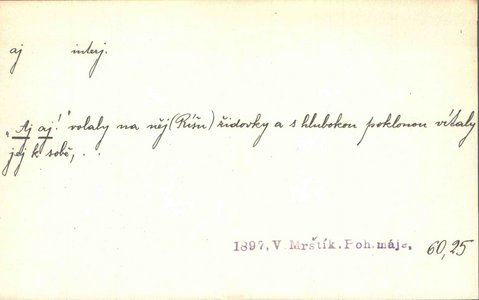 aj interj.
„Aj aj!" volaly na něj (Ríšu) židovky a s hlubokou poklonou vítaly
jej k sobě, . .
1897, V. Mrštík. Poh. máje, 60,25